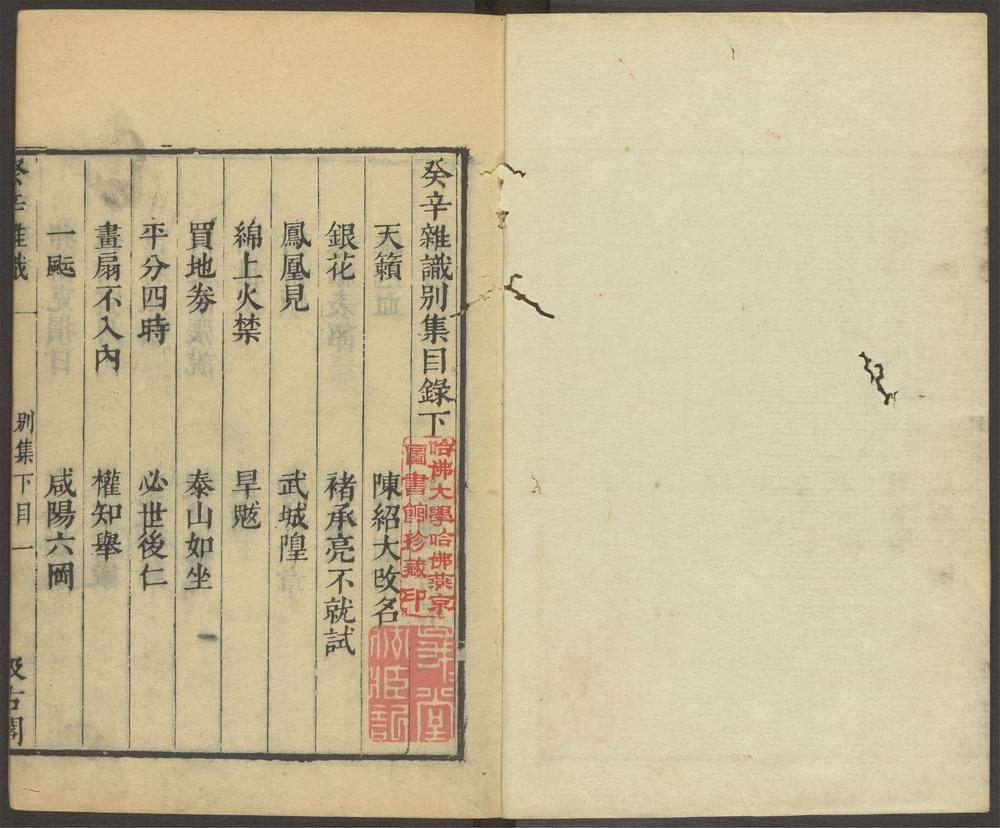 癸辛雜識別集目錄下
天籟 陳紹大改名
銀花 褚承亮不就試
鳳凰見 武城隍
綿上火禁 旱魃
買地劵 泰山如坐
平分四時 必世後仁
畫扇不入內 權知舉
一颩 咸陽六岡
癸辛雜識 別集下目 一 汲古閣
哈佛大學哈佛燕京
圖書館珍藏印